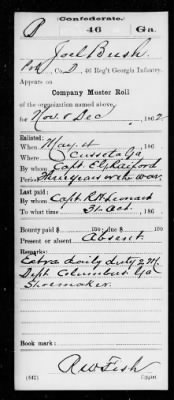 Confederate.
B 46 Ga.
Joel Bush
Pvt, Co. D, 46 Reg't Georgia Infantry.
Appears on
Company Muster Roll
of the organization named above,
for Nov & Dec, 1862
Enlisted:
When May 4, 186
Where Cusseta Ga
By whom Capt.
Period Three years or the war
Last paid:
By whom Capt. R. H. Leonard
To what time 31 Oct., 186
Bounty paid $ 100; due $ 100
Present or absent Absent.
Remarks:
Extra daily duty Q M
Dept Columbus Ga
Shoemaker.
Book mark:
R W Fish
(642) Copyist.